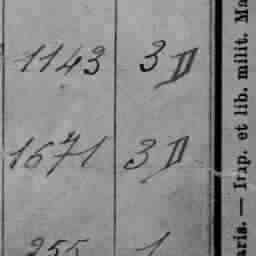 1143 3 D
1671 3 D
255 1
aris. — Imp. et lib. milit. Ma